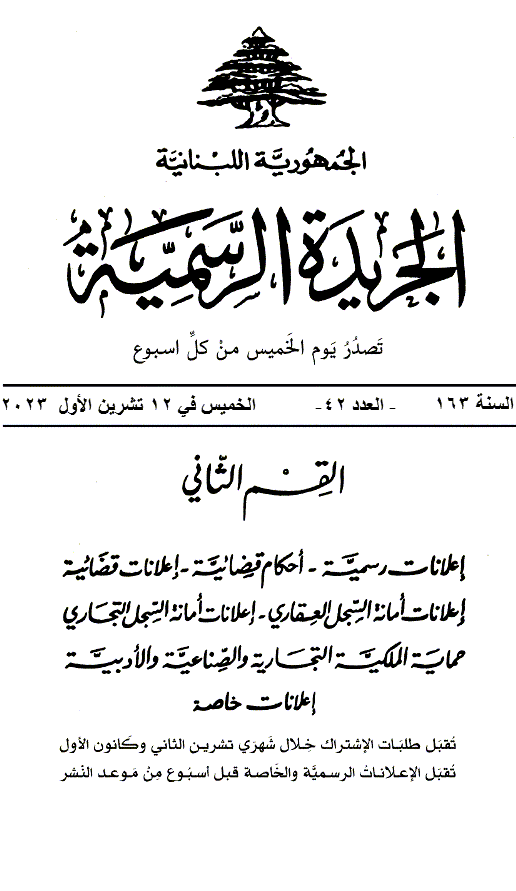 الجُمهُوريَّة اللبْنانيَّة
الجَريدَة الرسَّميَّة
تَصدُرُ يَوم الخَميس مِنْ كلِّ اسبوع
السنة ١٦٣ - العدد ٤٢- الخميس في ١٢ تشرين الأول ٢٠٢٣
القِسْم الثّاني
إعلانات رسميَّة - أحكام قضائيَّة - إعلانات قضائية
إعلانات أمانة السِّجل العقاري - إعلانات أمانة السِّجل التجاري
حماية الملكيَّة التجارية والصِّناعيَّة والأدبيَّة
إعلانات خاصة
تُقبَل طلبَات الإشتراك خِلال شَهرَي تشرين الثاني وكَانون الأول
تُقبَل الإعلاناتُ الرسميَّة والخَاصة قبل أسبُوع مِنْ مَوعد النَشر